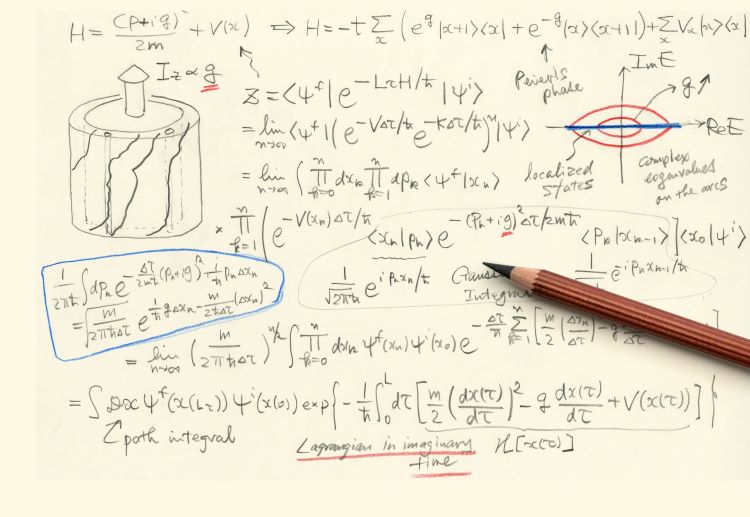 H = (p+ig)²/2m + V(x) ⇔ H = -t Σ_x (e^g |x+1><x| + e^{-g} |x><x+1|) + Σ_x V_x |x><x|
I_z ∝ g
Peierls phase
Im E
g ↗
Re E
localized states
complex eigenvalues on the arcs
Z = <ψ^f| e^{-L_τ H/ħ} |ψ^i>
= lim_{n→∞} <ψ^f| (e^{-VΔτ/ħ} e^{-KΔτ/ħ})^n |ψ^i>
= lim_{n→∞} (∏_{k=0}^{n} dx_k ∏_{k=1}^{n} dp_k <ψ^f|x_n>
× ∏_{k=1}^{n} (e^{-V(x_n)Δτ/ħ} <x_n|p_n> e^{-(p_n+ig)²Δτ/2mħ} <p_k|x_{k-1}>] <x_0|ψ^i>
1/√2πħ e^{i p_n x_n/ħ}
e^{i p_n x_{n-1}/ħ}
1/2πħ ∫dp_n e^{-Δτ/2mħ (p_n+ig)² + i/ħ p_n Δx_n}
= √(m/2πħΔτ) e^{1/ħ gΔx_n - m/2ħΔτ (Δx_n)²}
= lim_{n→∞} (m/2πħΔτ)^{n/2} ∫ ∏_{k=0}^{n} dx_k ψ^f(x_n) ψ^i(x_0) e^{-Δτ/ħ Σ_{k=1}^{n} [m/2 (Δx_n/Δτ)² - g
= ∫ Dx ψ^f(x(L_τ)) ψ^i(x(0)) exp{-1/ħ ∫_0^L dτ [m/2 (dx(τ)/dτ)² - g dx(τ)/dτ + V(x(τ))]}
path integral
Lagrangian in imaginary time
H[x(τ)]